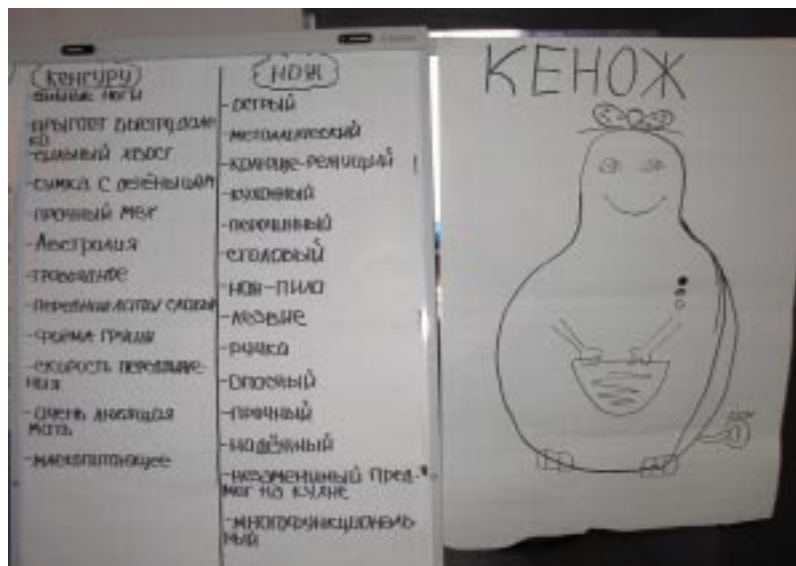 КЕНГУРУ
НОЖ
КЕНОЖ
ноги
-прыгает быстро, дале
ко
-сильный хвост
-сумка с детёнышем
-прочный мех
-Австралия
-травоядное
-передние лапы слабые
-форма груши
-скорость передвиже-
ния
-очень любящая
мать
-млекопитающее
-острый
-металлический
-колюще-режущий
-кухонный
-перочинный
-столовый
-нож-пила
-лезвие
-ручка
-опасный
-прочный
-надёжный
-незаменимый пред-
мет на кухне
-многофункциональ-
ный